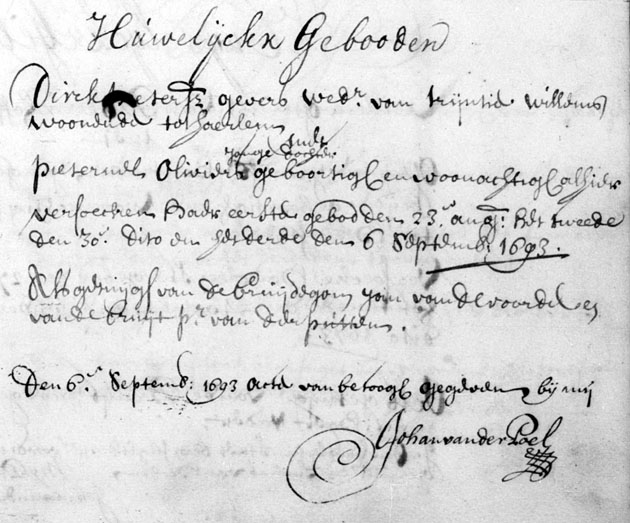 Huwelijckx Gebooden
Dirck Pietersz gevers wedr. van trijntie willems
woonende tot haerlem
jonge dochter
pieternel Oliviers geboortigh en woonachtigh alhier
versoecken haer eerste gebod den 23e. aug: het tweede
den 30e. dito en het derde den 6 Septemb: 1693.
Als getuijgh van de bruijdegom jan van de voorde en
vande bruijt pr. van der putten.
Den 6e. Septemb: 1693 acte van betoogh gegeven bij mij
Johan van der Poel